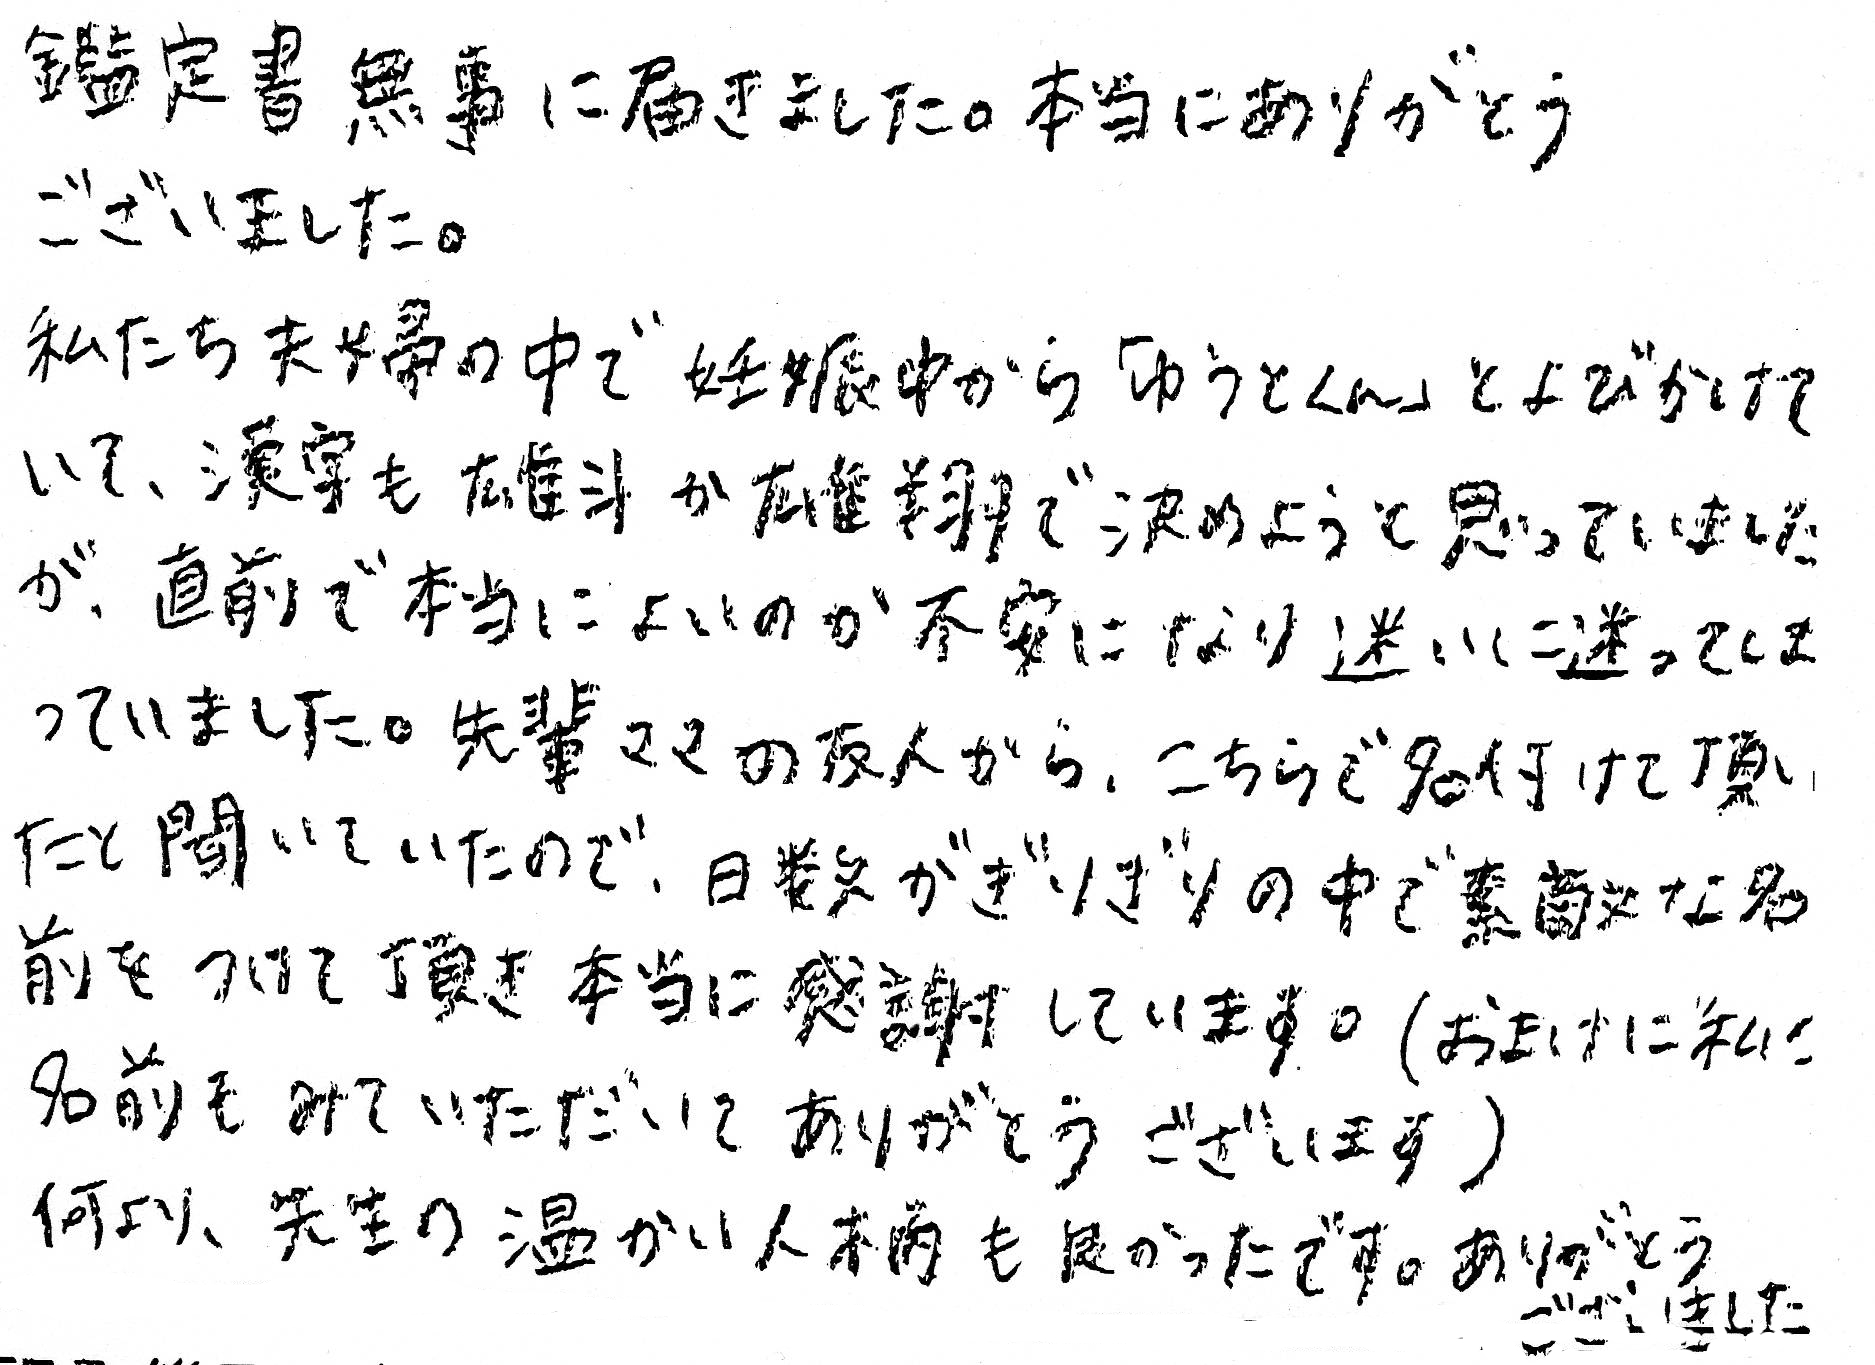 鑑定書無事に届きました。本当にありがとう
ございました。
私たち夫婦の中で妊娠中から「ゆうとくん」とよびかけて
いて、漢字も雄斗か雄翔で決めようと思っていました
が、直前で本当によいのか不安になり迷いに迷ってしま
っていました。先輩ママの友人から、こちらで名付けて頂い
たと聞いていたので、日数がぎりぎりの中で素敵な名
前をつけて頂き本当に感謝しています。(おまけに私の
名前もみていただいてありがとうございます)
何より、先生の温かい人柄も良かったです。ありがとう
ございました